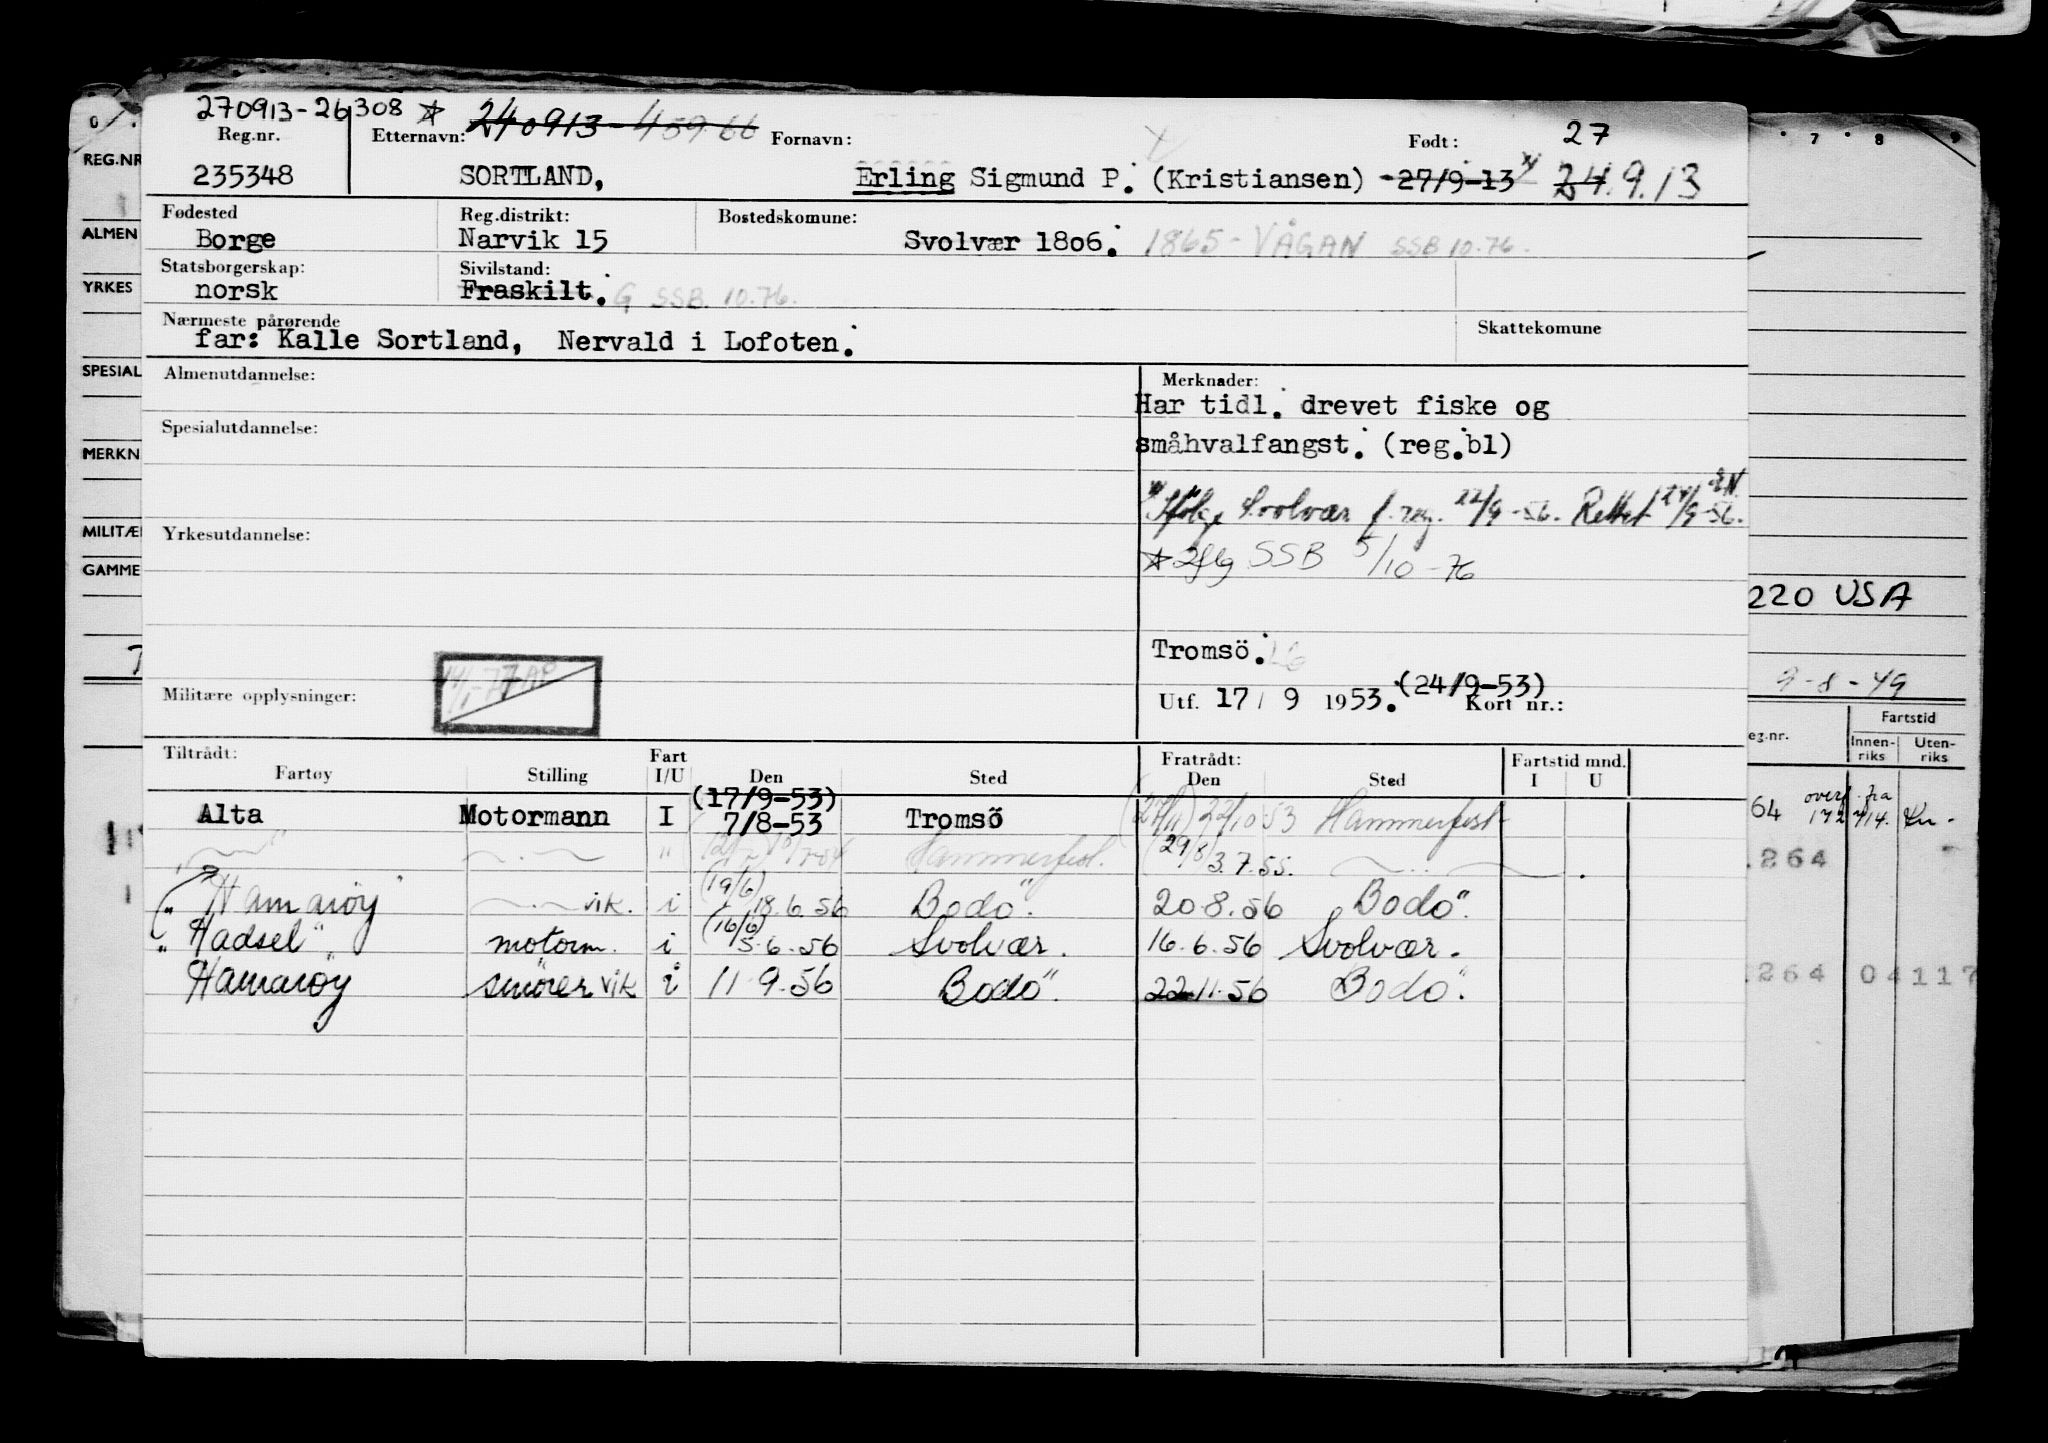 270913-26308 ☆ 240913-45966
Reg.nr. Etternavn: Fornavn: Født: 27
235348 SORTLAND, Erling Sigmund P. (Kristiansen) 27/9-13 24.9.13
Fødested Reg.distrikt: Bostedskomune:
Borge Narvik 15 Svolvær 1806. 1865-VÅGAN SSB 10.76.
Statsborgerskap: Sivilstand:
norsk Fraskilt. G SSB. 10.76.
Nærmeste pårørende Skattekomune
far: Kalle Sortland, Nervald i Lofoten.
Almenutdannelse: Merknader:
Har tidl. drevet fiske og
Spesialutdannelse: småhvalfangst. (reg.bl)
Ifölge Svolvær f. reg. 22/9-56. Rettet 24/9-56.
Yrkesutdannelse:
☆ Iflg SSB 5/10-76
Tromsö.
Militære opplysninger: Utf. 17/9 1953. (24/9-53) Kort nr.:
Tiltrådt: Fart Fratrådt: Fartstid mnd.
Fartøy Stilling I/U Den Sted Den Sted I U
(17/9-53)
Alta Motormann I 7/8-53 Tromsö 22/10 53 Hammerfest
" " Hammerfest. (29/8) 3.7.55.
"Hamarøy" vik. i (19/6) 18.6.56 Bodö. 20.8.56 Bodö.
"Hadsel" motorm. i (16/6) 5.6.56 Svolvær. 16.6.56 Svolvær.
Hamarøy smörer vik i 11.9.56 Bodö. 22.11.56 Bodö.
REG.NR
ALMEN
YRKES
SPESIAL
MERKN
MILITÆ
GAMME
7 8 9
220 USA
9-8-49
eg.nr. Fartstid
Innen-riks Uten-riks
64 overf. fra
264
264 04117